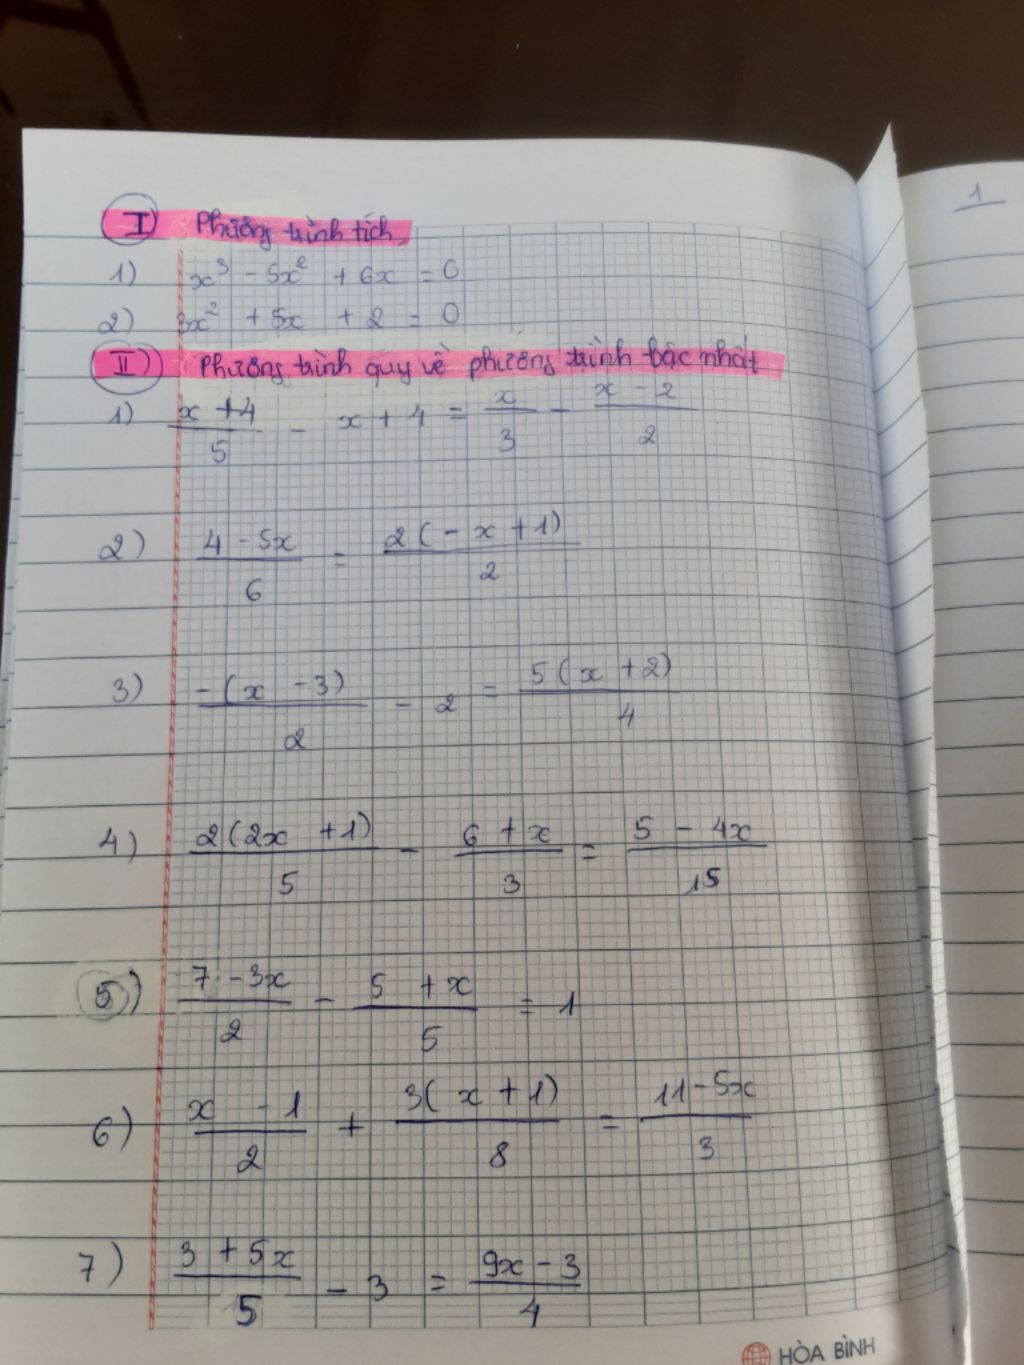 I) Phương trình tích
1) x³ - 5x² + 6x = 0
2) 3x² + 5x + 2 = 0
II) Phương trình quy về phương trình bậc nhất
1) (x + 4)/5 - x + 4 = x/3 - (x - 2)/2
2) (4 - 5x)/6 = 2(-x + 1)/2
3) -(x - 3)/2 - 2 = 5(x + 2)/4
4) 2(2x + 1)/5 - (6 + x)/3 = (5 - 4x)/15
5) (7 - 3x)/2 - (5 + x)/5 = 1
6) (x - 1)/2 + 3(x + 1)/8 = (11 - 5x)/3
7) (3 + 5x)/5 - 3 = (9x - 3)/4
HÒA BÌNH
1